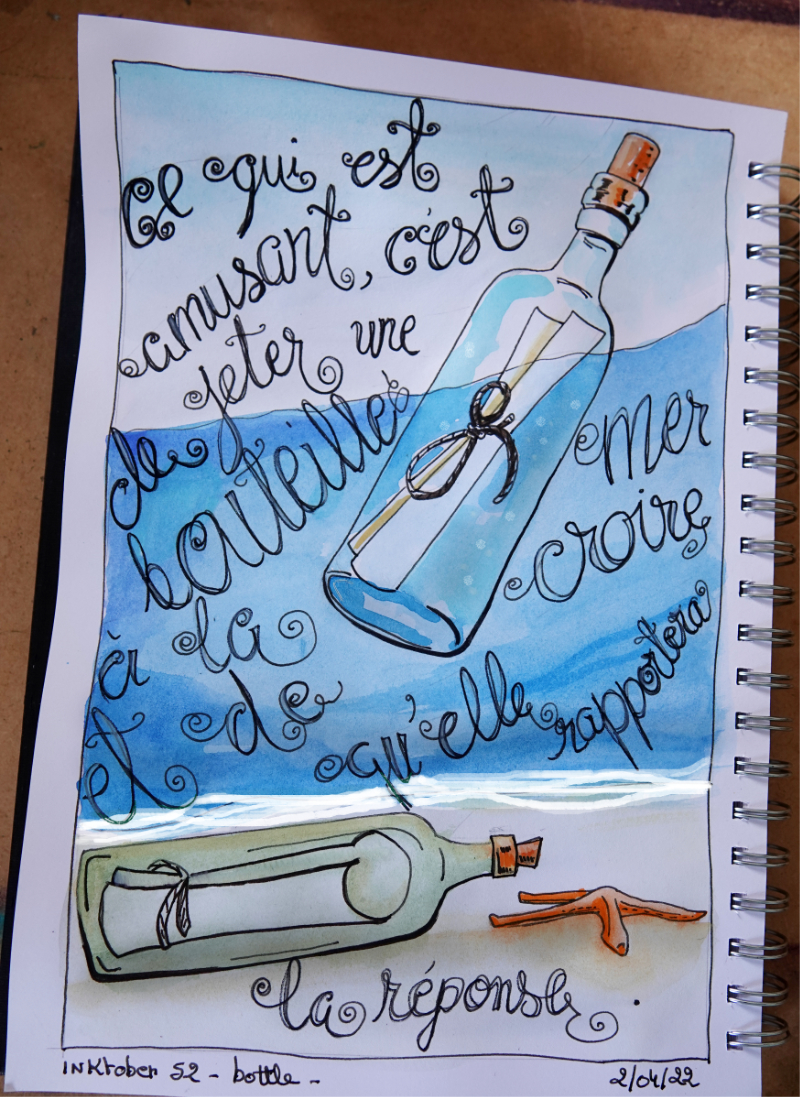 Ce qui est
amusant, c'est
jeter une
de bouteille
à la mer
et de croire
qu'elle rapportera
la réponse.
INKtober 52 - bottle -
2/04/22